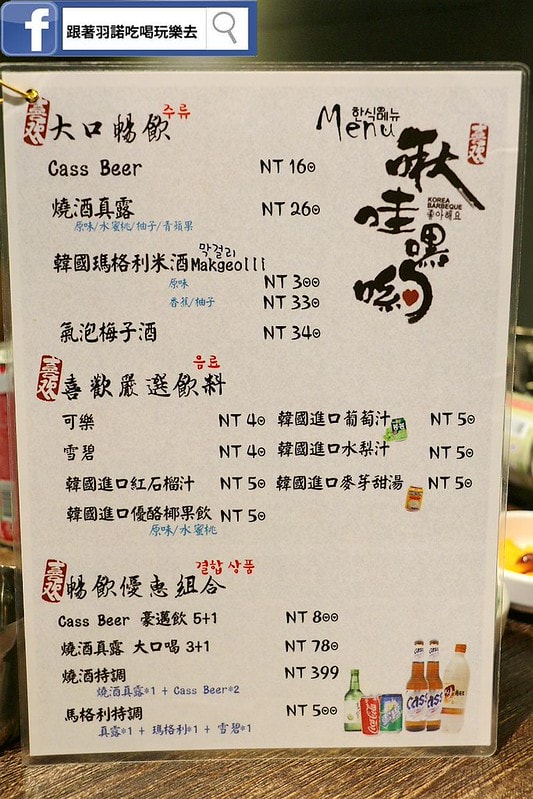 跟著羽諾吃喝玩樂去
喜歡
大口暢飲
주류
한식메뉴
Menu
喜歡
啾哇嘿喲
KOREA
BARBEQUE
좋아해요
Cass Beer NT 160
燒酒真露 NT 260
原味/水蜜桃/柚子/青蘋果
막걸리
韓國瑪格利米酒Makgeolli
原味 NT 300
香蕉/柚子 NT 330
氣泡梅子酒 NT 340
喜歡
음료
喜歡嚴選飲料
可樂 NT 40
韓國進口葡萄汁 NT 50
雪碧 NT 40
韓國進口水梨汁 NT 50
韓國進口紅石榴汁 NT 50
韓國進口麥芽甜湯 NT 50
韓國進口優酪椰果飲 NT 50
原味/水蜜桃
喜歡
결합 상품
暢飲優惠組合
Cass Beer 豪邁飲 5+1 NT 800
燒酒真露 大口喝 3+1 NT 780
燒酒特調 NT 399
燒酒真露*1 + Cass Beer*2
馬格利特調 NT 500
真露*1 + 瑪格利*1 + 雪碧*1
Coca-Cola
Cass
Cass